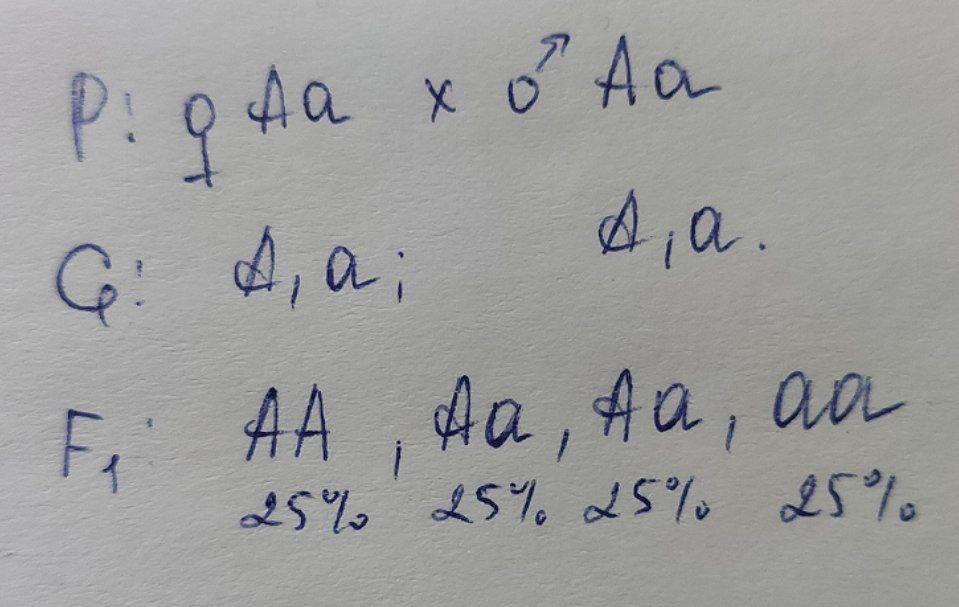 P: ♀ Aa x ♂ Aa
G: A, a; A, a.
F1: AA, Aa, Aa, aa
25% 25% 25% 25%